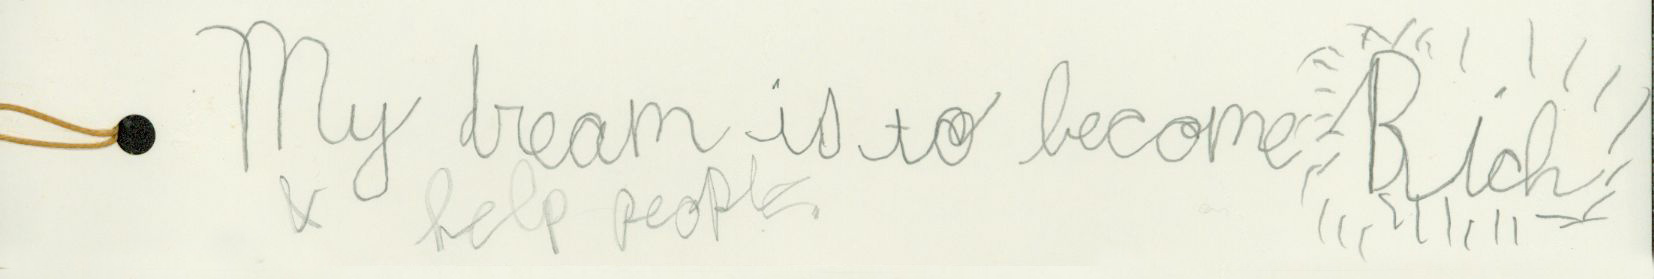 My dream is to become Rich
& help people.